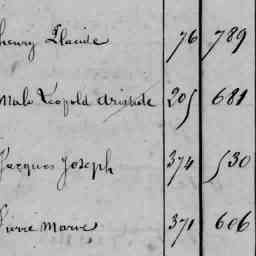 henry Placide 76 789
Male Léopold Aristide 205 681
Jacques Joseph 374 530
Pierre Marie 371 606